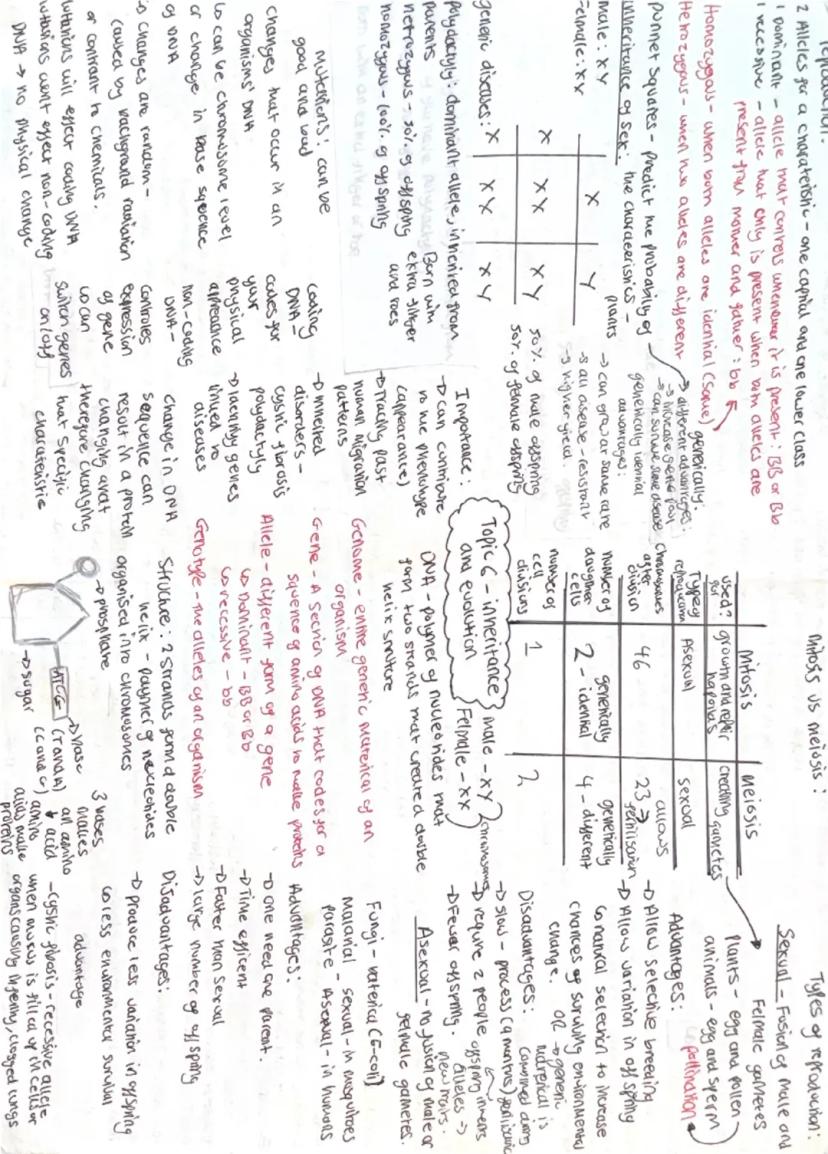 Reproduction:
2 Alleles for a characteristic - one capital and one lower class
1 Dominant - allele that controls whenever it is present: BB or Bb
1 recessive - allele that only is present when both alleles are
present from mother and father: bb
Homozygous - when both alleles are identical (same)
Hetrozygous - when two alleles are different
punnet squares - predict the probability of
inheritance of sex: the characteristics -
male: XY
Felmale: XX
X Y
X XX XY
X XX XY
50% of male offspring
50% of female offspring
plants
→ can grow at same rate
→ all disease-resistant
→ higher yield.
genetically idenital
advantages:
genetically:
→ different advantages:
→ increase gene pool
→ can survive some disease
genetic diseases:
polydactyly: dominant allele, inherited from
parents
Born with
extra finger
and toes
hetrozygous - 50% of offspring
homozygous - 100% of offspring
mutations: can be
good and bad
changes that occur in an
organisms' DNA
↳ can be chromosome level
or change in base sqence
of DNA
↳ changes are random -
caused by background radiation
or contrant to chemicals.
mutations will effect coding DNA
mutations wont effect non-coding
DNA → no physical change
coding
DNA -
codes for
your
physical
appearance
non-coding
DNA -
controles
expression
of gene
↳ can
switch genes
on/off
Importance:
→ can contribute
to the phenotype
(appearance)
→ Tracing past
human migration
patterns
→ inherited
disorders -
cystic fibrosis
polydactyly
→ Identify genes
linked to
diseases
change in DNA
sequence can
result in a protein
changing and
therefore changing
that specific
charateristic
Mitosis vs meiosis:
Mitosis meiosis
used for? growth and repair creating gametes
Type of reproduction Asexual sexual
chromosomes after division 46 23 → allows fertilisation
number of daughter cells 2 - genetically idenital 4 - genetically different
number of cell divisions 1 2
Topic 6 - inheritance
and evolution
male - XY
Felmale - XX
chromosomes
DNA - polymer of nucleotides that
form two strands that created double
helix struture
Genome - entire genetic material of an
organism
Gene - A section of DNA that codes for a
squence of amino acids to make proteins
Allele - different form of a gene
↳ Dominant - BB or Bb
↳ recessive - bb
Genotype - the alleles of an organism
Structure: 2 strands form a double
helix - polymer of nucleotides
organised into chromosomes
→ phosphate
→ sugar
ATCG
→ base
(T and A)
(C and G)
3 bases
makes
an amino
acid
↓
amino
acids make
proteins
Types of reproduction:
Sexual - Fusion of male and
Felmale gametes
Plants - egg and pollen
animals - egg and sperm
pollination
Advantages:
→ Allow selective breeding
→ Allow variation in offspring
↳ natural selection to increase
chances of surviving environmental
change. OR → genetic
material is
combined during
Disadvantages:
→ slow - process (9 months)
→ require 2 people
→ Fewer offspring.
offspring inherits
alleles →
new traits.
Asexual - no fusion of male or
felmale gametes.
Fungi - bateria (E-coli)
Malarial - sexual - in mosquitoes
parasite Asexual - in humans
Advantages:
→ one need one parent.
→ Time efficent
→ Faster than sexual
→ large number of offspring
Disadvantages:
→ produce less variation in offspring
↳ less environmental survival
advantage
- cystic fibrosis - recessive allele
when mucus is filled up in cells or
organs causing infening, clogged lungs